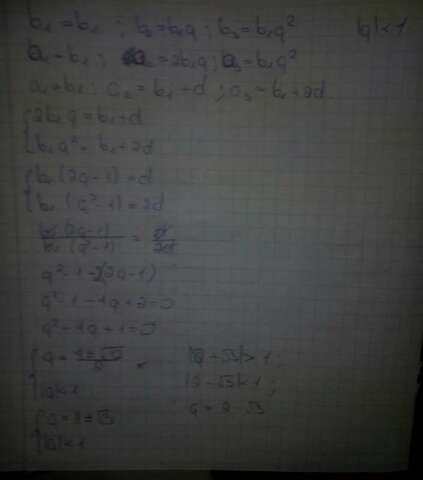 b₁ = b₁ ; b₂ = b₁q ; b₃ = b₁q² |q| < 1
a₁ = b₁ ; a₂ = 2b₁q ; a₃ = b₁q²
a₁ = b₁ ; a₂ = b₁ + d ; a₃ = b₁ + 2d
{ 2b₁q = b₁ + d
{ b₁q² = b₁ + 2d
{ b₁(2q - 1) = d
{ b₁(q² - 1) = 2d
b₁(2q-1) / b₁(q²-1) = d / 2d
q² - 1 = 2(2q - 1)
q² - 1 - 4q + 2 = 0
q² - 4q + 1 = 0
|2 + √3| > 1 ;
|q| < 1 |2 - √3| < 1 ;
{ q = 2 ± √3 q = 2 - √3
{ |q| < 1